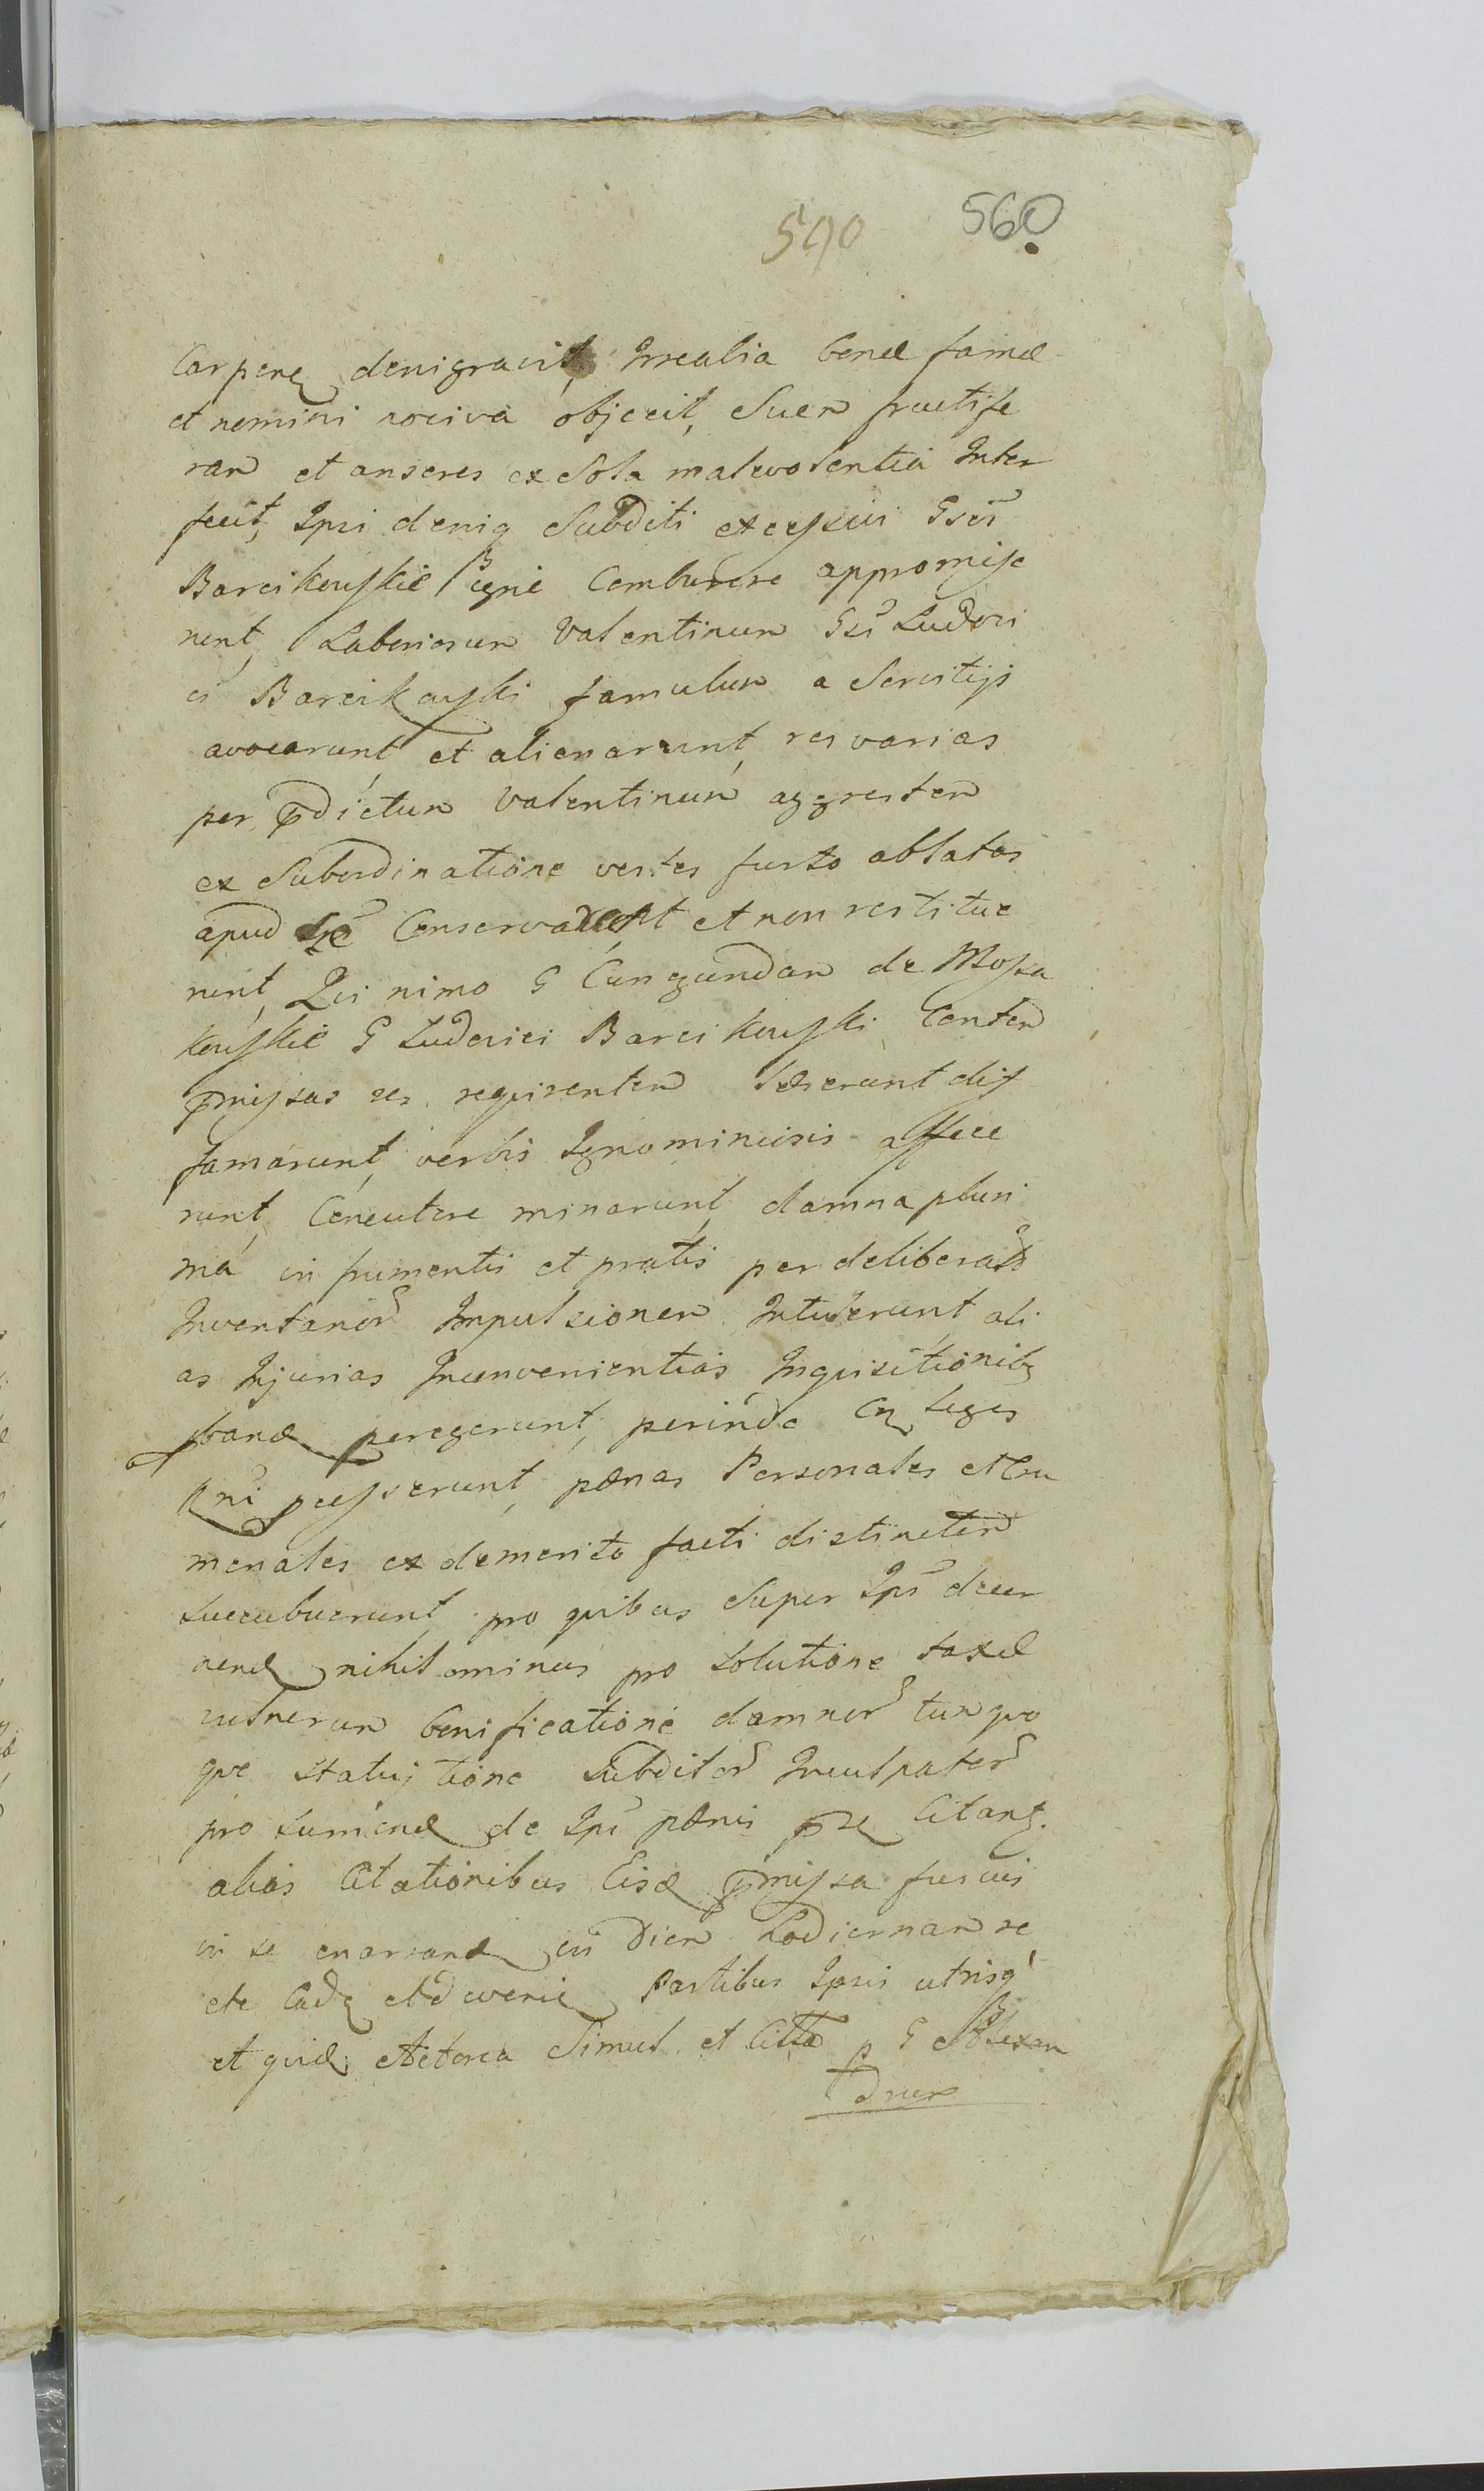 590 560
Carpere denigravit, Irrealia bonæ famæ
et nomini nociva objecit, Suem fructife
ram et anseres ex Sola malevolentia Inter
fecit, Ipsi deniq Subditi excessivi Gsos
Barcikowskie igne Comburere appromise
runt, Laboriosum Valentinum Gsi Ludovi
ci Barcikowski famulum a Servitijs
avocarunt et alienarunt, res varias
per prdictum Valentinum aggrestem
ex Subordinatione vestes furto ablatas
apud se Conservarunt et non restitue
runt, Qui nimo G Cungundam de Mossa
kowskie G Ludovici Barcikowski Conten
pmissas res requirentem læserunt dif
famarunt, verbis Ignominiosis affece
runt, Concutere minarunt, damna pluri
ma in frumentis et pratis per deliberatã
Inventarior Impulsionem Intulerunt ali
as Injurias Inconvenientias Inquisitionibq
pbandæ peregerunt, perinde in Leges
Rni pecyserunt, pænas Personales et Cri
menales ex demerito facti distinctim
Succubuerunt, pro quibus Super Ipsis decer
nend nihilominus pro Solutione taxæ
vulnerum bonificatione damnor tum quo
que statuitione Subditor Inculpator
pro sumend de Ipsis pænis pse Citant.
alias Citationibus Eisd pmissa fusius
in se enarrand in Diem hodiernam re
cte Cadq et deveniq Partibus Ipsis utrisq
et quid Actorea Simul et Citta p G Alexan
drum